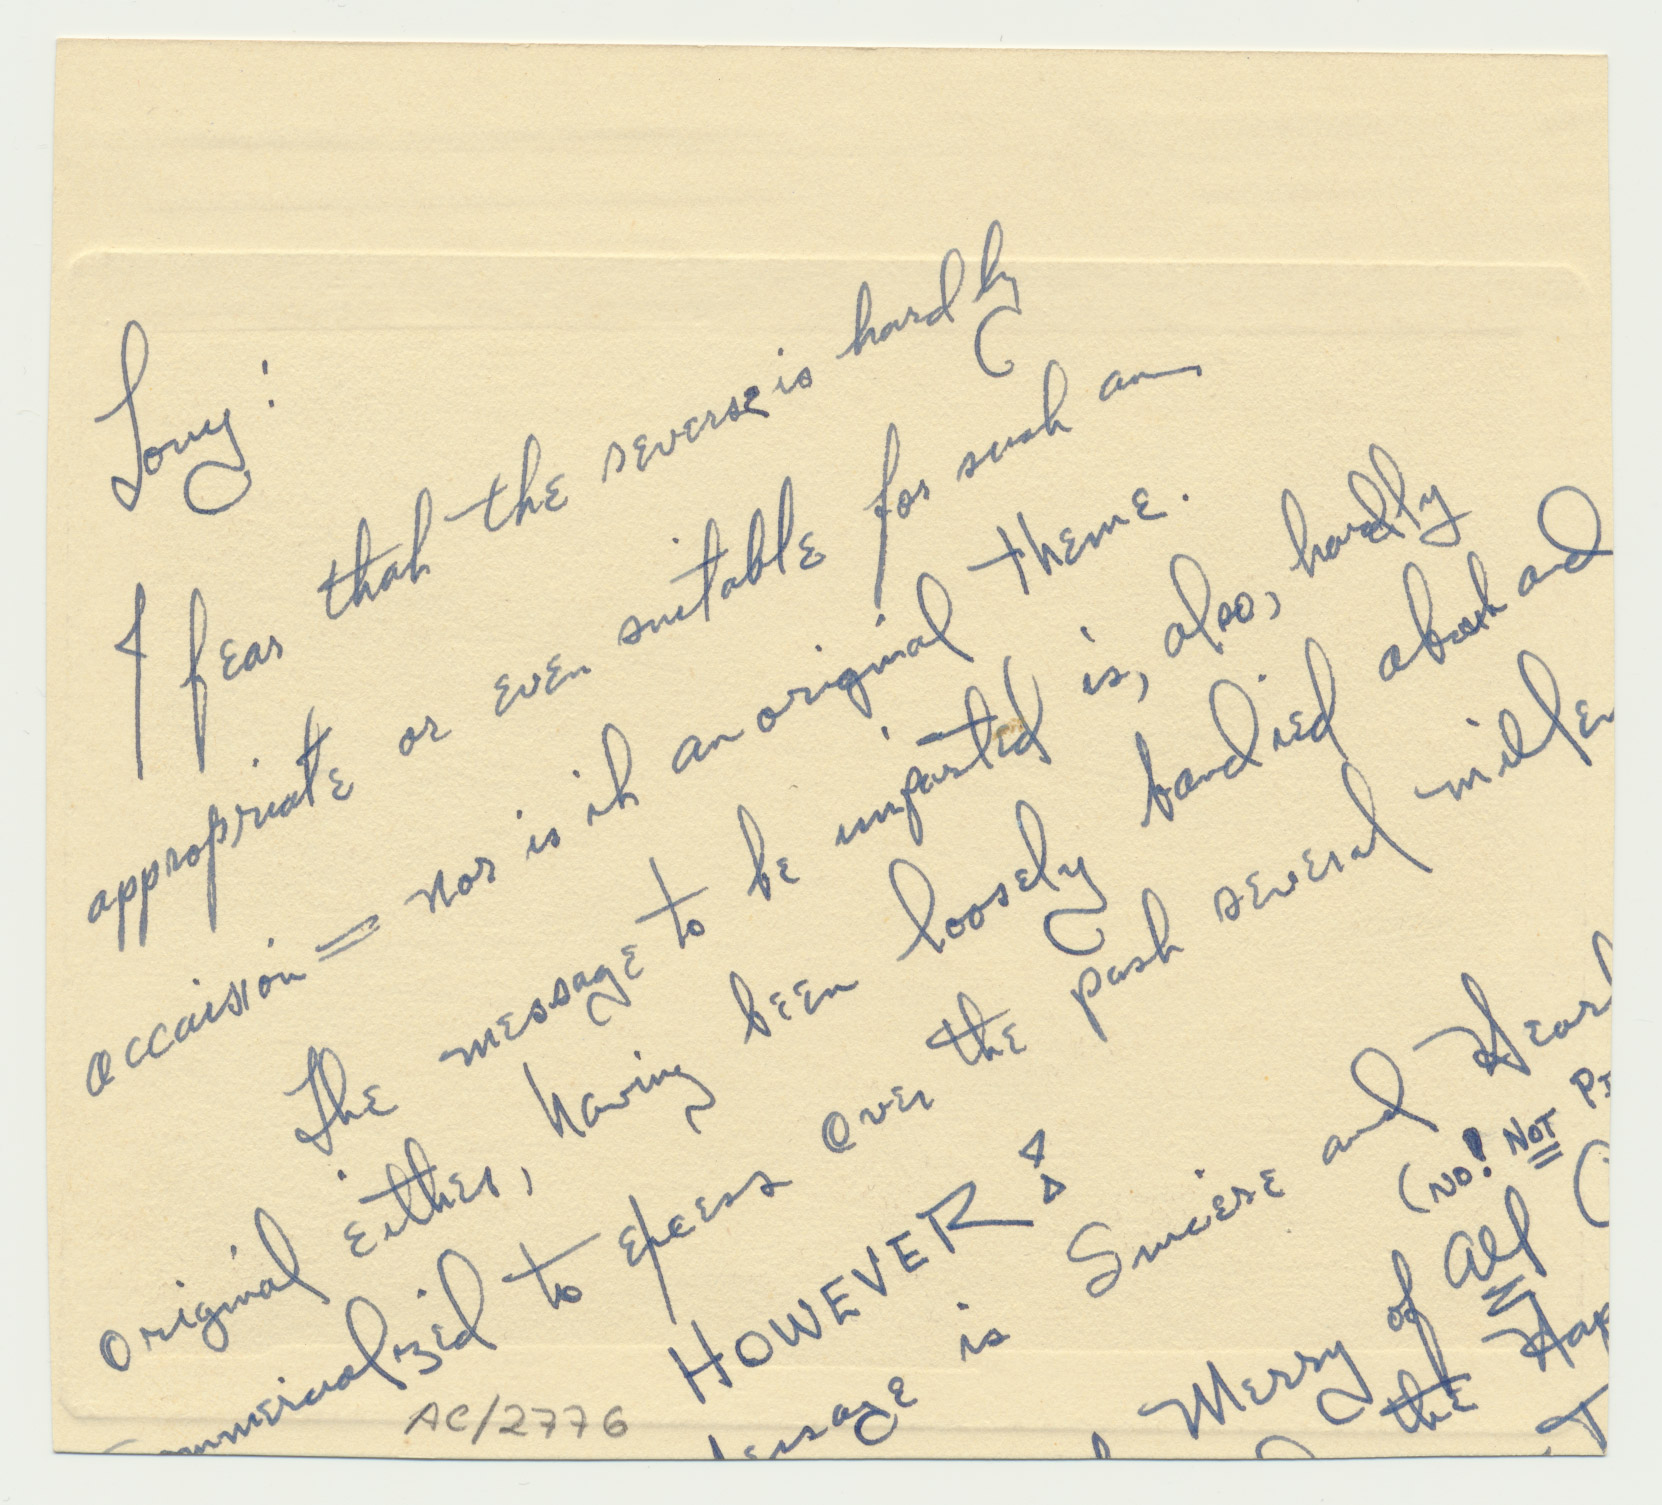 Tony:
I fear that the reverse is hardly
appropriate or even suitable for such an
occaision = nor is it an original theme.
The message to be imparted is, also, hardly
original either, having been loosely bandied about and
commercialized to excess over the past several millen
HOWEVER:
message is Sincere and Heart
(NO! NOT
Merry of All
the Hap
AC/2776